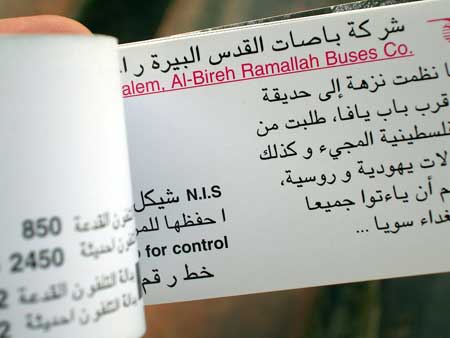 شركة باصات القدس البيرة ر
alem, Al-Bireh Ramallah Buses Co.
ا نظمت نزهة إلى حديقة
قرب باب يافا، طلبت من
فلسطينية المجيء و كذلك
لات يهودية و روسية،
م أن ياءتوا جميعا
غداء سويا ...
شيكل N.I.S
ا حفظها للمر
for control
خط ر قم
850
2450